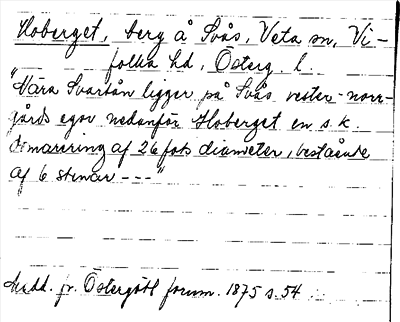 Hoberget, berg å Svås, Veta sn, Vi-
folka hd, Österg. l.
"Nära Svartån ligger på Svås vester-norr-
gårds egor nedanför Hoberget en s.k.
domarering af 26 fots diameter, bestående
af 6 stenar ---"
Medd. fr. Östergötl fornm. 1875 s. 54